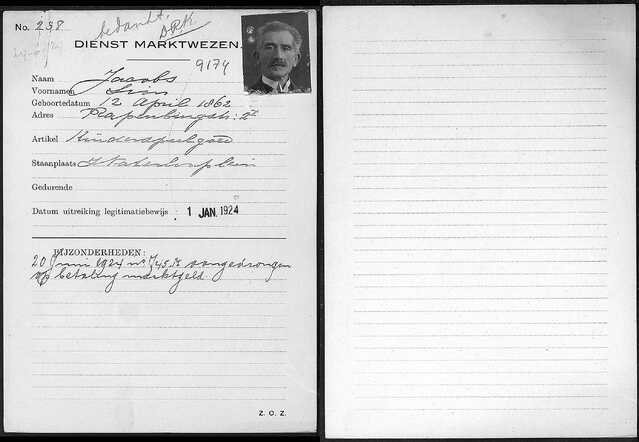 No. 238
bedankt.
DRK
DIENST MARKTWEZEN.
9174
Naam Jacobs
Voornamen
Geboortedatum 12 April 1862
Adres
Artikel Kinderspeelgoed
Staanplaats
Gedurende
Datum uitreiking legitimatiebewijs : 1 JAN. 1924
BIJZONDERHEDEN:
20 Juni 1924 aangedrongen
op betaling marktgeld
Z. O. Z.